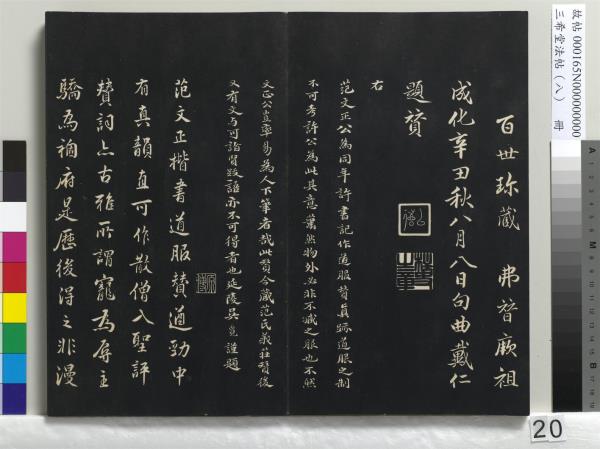 百世珎藏 弗替厥祖
成化辛丑秋八月八日句曲戴仁
題賛
右
范文正公為同年許書記作道服賛真跡道服之制
不可考許公為此其意蕭然物外必非不衷之服也不然
文正公豈率易為人下筆者哉此賛今藏范氏義莊賛後
又有文与可諸賢跋語亦不可得者也延陵吳寬謹題
范文正楷書道服賛遒勁中
有真韻直可作散僧入聖評
賛詞亦古雅所謂寵為辱主
驕為禍府是歷後得之非漫
故帖 000165N000000000
三希堂法帖（八） 冊
20